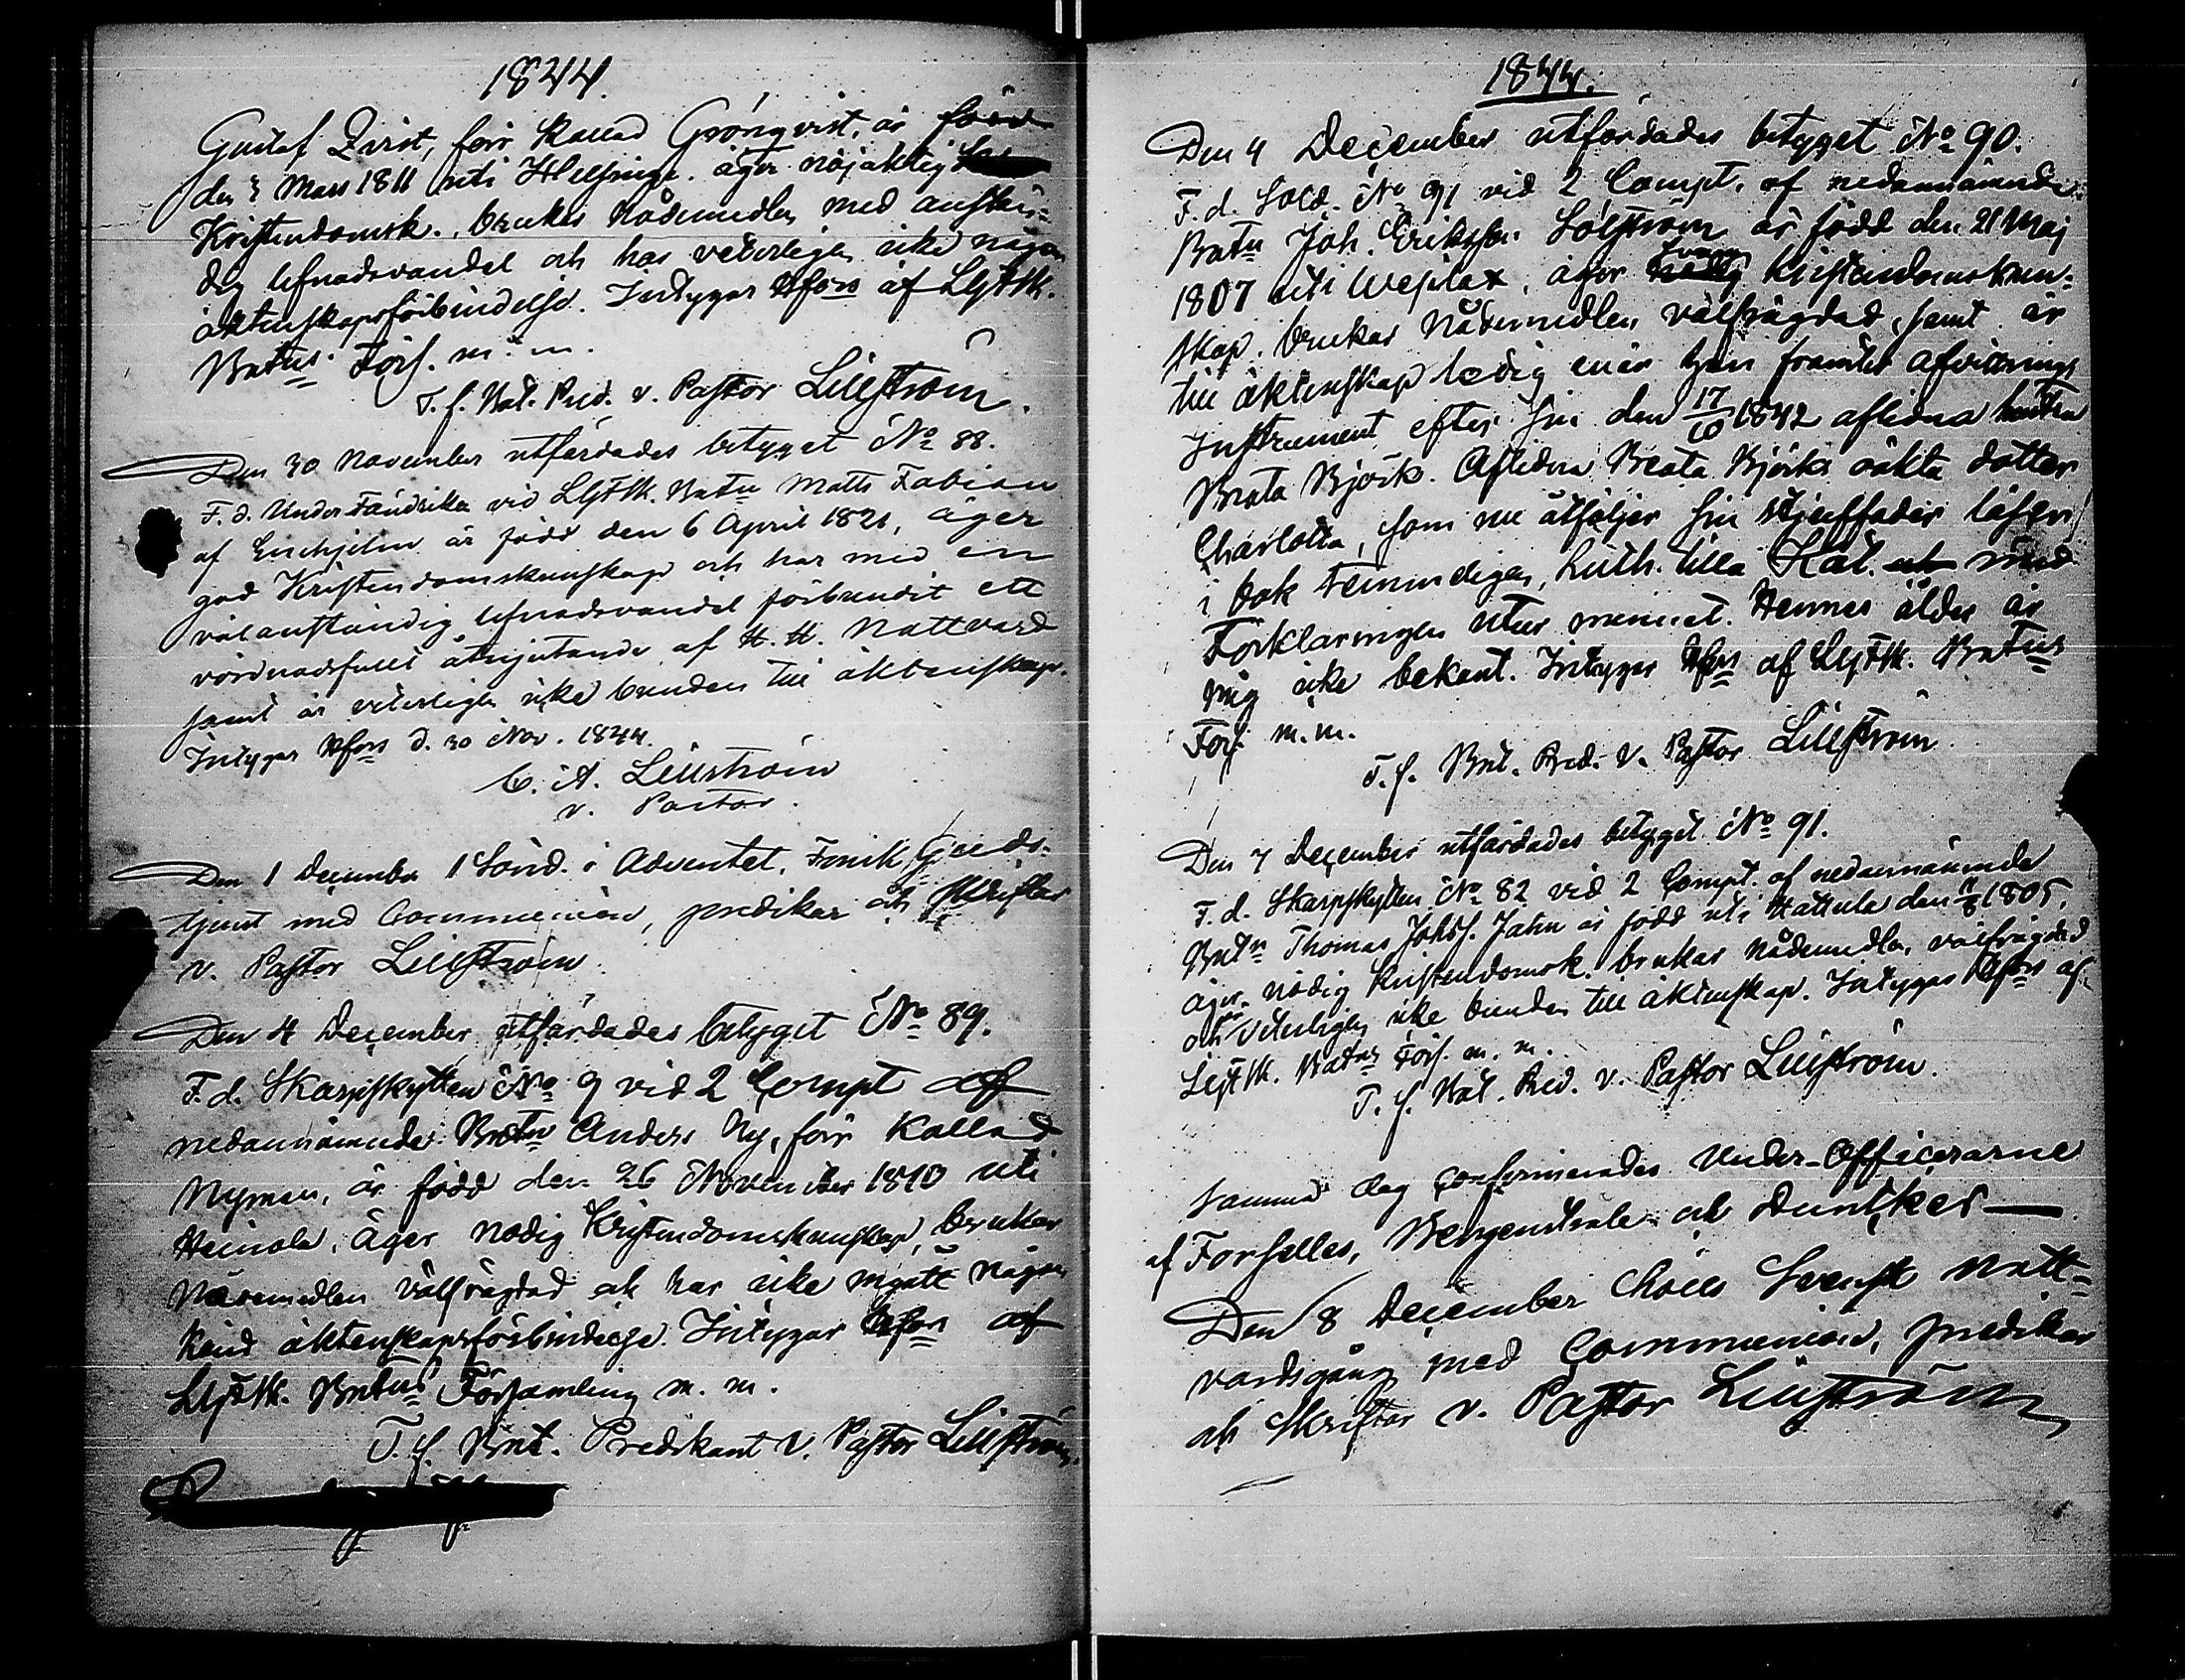 1844.
Gustaf Qvist, förr kallad Grönqvist, är född
den 3 Mars 1811 uti Helsinge. äger nöjaktig
Kristendomsk., brukar Nådemedlen med anstän-
dig lefnadsvandel och har veterligen icke någon
äktenskapsförbindelse. Intygar Hfors af LGFSk.
Batns Förs. m. m.
T. f. Bat. Pred. v. Pastor Lillström.
Den 30 November utfärdades betyget No 88.
F. d. Under Fändriken vid LGFSk. Batn Matts Fabian
af Enehjelm är född den 6 April 1821, äger
god Kristendomskunskap och har med en
välanständig lefnadsvandel förbundit ett
vördnadsfullt åtnjutande af H. H. Nattvard
samt är veterligen icke bunden till äktenskap.
Intygar Hfors d. 30 Nov. 1844.
C. A. Lillström
v. Pastor.
Den 1 December 1 Sönd. i Adventet, Finsk Guds-
tjenst med Communion, predikar och skriftar
v. Pastor Lillström
Den 4 December utfärdades betyget No 89.
F. d. Skarpskytten No 9 vid 2 Compt af
nedannämnde Batn Anders Ny, förr kallad
Nyman, är född den 26 November 1810 uti
Heinola, äger nödig Kristendomskunskap, brukar
Nådemedlen välfrägdad och har icke ingått någon
känd äktenskapsförbindelse. Intygar Hfors af
LGFSk. Batns Församling m. m.
T. f. Bat. Predikant v. Pastor Lillström.
1844.
Den 4 December utfärdades betyget No 90.
F. d. Sold. No 91 vid 2 Compt. af nedannämnde
Batn Joh. Eriksson Sölström är född den 21 Maj
1807 uti Wesilax, äger svag Kristendomskun-
skap, brukar Nådemedlen välfrägdad, samt är
till äktenskap ledig enär han framter afvittrings
Instrument efter sin den 17/10 1842 aflidna hustru
Beata Björk. Aflidna Beata Björks oäkta dotter
Charlotta, som nu åtföljer sin styuffader läser
i bok temmeligen, Luth. lilla Kat. med
Förklaringen utur minnet. Hennes ålder är
mig icke bekant. Intygar Hfors af LGFSk. Batns
Förs. m. m.
T. f. Bat. Pred. v. Pastor Lillström.
Den 7 December utfärdades betyget No 91.
F. d. Skarpskytten No 82 vid 2 Compt. af nedannämnde
Batn Thomas Johss. Jahn är född uti Hattula den 1805,
äger nödig Kristendomsk. brukar Nådemedlen välfrägdad
och är veterligen icke bunden till äktenskap. Intygar Hfors af
LGFSk. Batns Förs. m. m.
T. f. Bat. Pred. v. Pastor Lillström.
Samma dag confirmerades Under-Officerarne
af Forselles, Bergenstråle och Duncker —
Den 8 December hölls Svensk Natt-
vardsgång med Communion, predikar
och skriftar v. Pastor Lillström